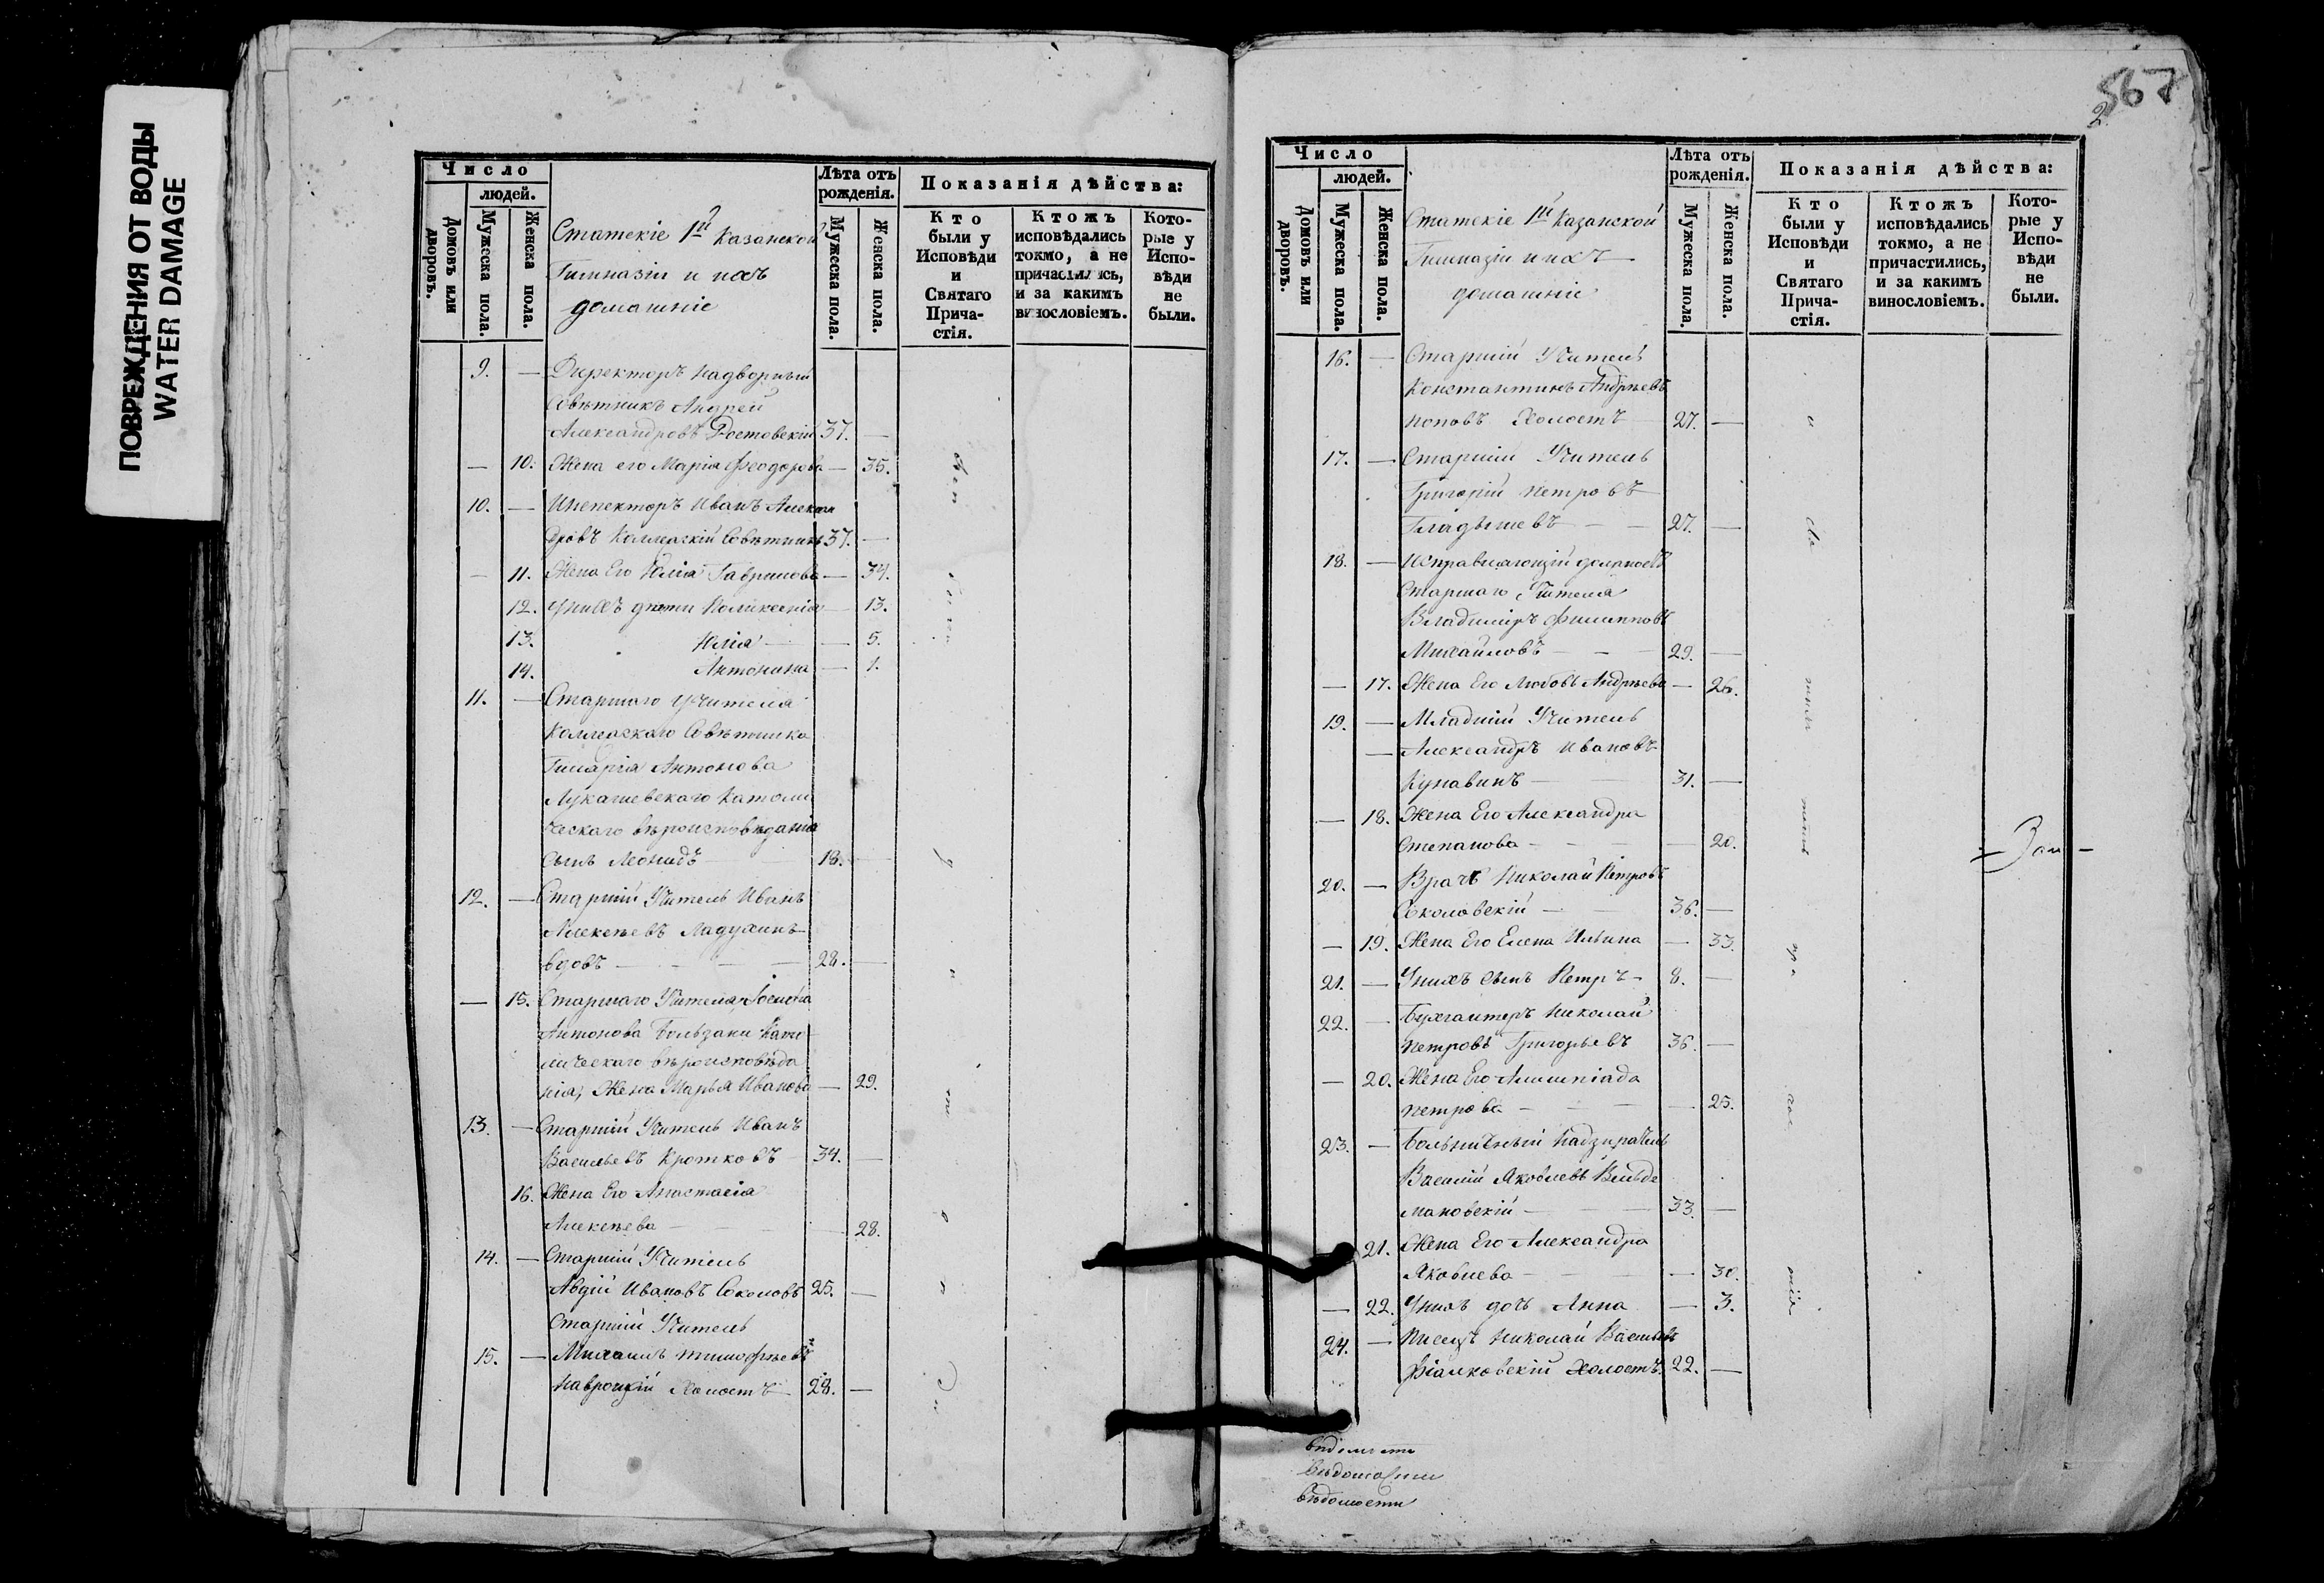 ПОВРЕЖДЕНИЯ ОТ ВОДЫ
WATER DAMAGE
Число
людей.
Домовъ или дворовъ.
Мужеска пола.
Женска пола.
Статскіе 1й Казанской
Гимназіи и ихъ
домашніе
Лѣта отъ рожденія.
Мужеска пола.
Женска пола.
Показанія дѣйства:
Кто были у Исповѣди и Святаго Причастія.
Ктожъ исповѣдались токмо, а не причастились, и за какимъ винословіемъ.
Которые у Исповѣди не были.
9. — Директоръ Надворный
Совѣтникъ Андрей
Александровъ Ростовскій 37. —
— 10. Жена его Марія Феодорова — 35.
10. — Инспекторъ Иванъ Алексан
дровъ Коллежскій Совѣтникъ 37. —
— 11. Жена Его Юлія Гаврилова — 34.
12. У нихъ дѣти Поликсенія — 13.
13. Юлія — — 5.
14. Антонина — 1.
11. — Старшаго Учителя
Коллежскаго Совѣтника
Гиларія Антонова
Лукашевскаго Католи
ческаго вѣроисповѣданія
сынъ Леонидъ 18. —
12. — Старшій Учитель Иванъ
Алексѣевъ Ладухинъ
вдовъ — — — — 28. —
— 15. Старшаго Учителя Іосифа
Антонова Больдзани Като
лическаго вѣроисповѣда
нія, Жена Марья Иванова — 29.
13. — Старшій Учитель Иванъ
Васильевъ Кротковъ 34. —
16. Жена Его Анастасія
Алексѣева — — 28.
14. — Старшій Учитель
Авдій Ивановъ Соколовъ 25. —
Старшій Учитель
15. — Михаилъ Тимофѣевъ
Навроцкій Холостъ — 28. —
567
2
Число
людей.
Домовъ или дворовъ.
Мужеска пола.
Женска пола.
Статскіе 1й Казанской
Гимназіи и ихъ
домашніе
Лѣта отъ рожденія.
Мужеска пола.
Женска пола.
Показанія дѣйства:
Кто были у Исповѣди и Святаго Причастія.
Ктожъ исповѣдались токмо, а не причастились, и за какимъ винословіемъ.
Которые у Исповѣди не были.
16. — Старшій Учитель
Константинъ Андрѣевъ
Поповъ Холостъ 27. —
17. — Старшій Учитель
Григорій Петровъ
Гладышевъ — — 27. —
18. — Исправляющій должность
Старшаго Учителя
Владиміръ Филипповъ
Михайловъ — — 29. —
— 17. Жена Его Любовь Андрѣева — 26.
19. — Младшій Учитель
— Александръ Ивановъ
Кунавинъ — 31. —
— 18. Жена Его Александра
Степанова — — — 20.
20. — Врачъ Николай Петровъ
Соколовскій — 36. —
— 19. Жена Его Елена Ильина — 33.
21. — У нихъ сынъ Петръ — 8. —
22. — Бухгалтеръ Николай
Петровъ Григорьевъ 36. —
— 20. Жена Его Алимпіада
Петрова — — 25.
23. — Больничный Надзиратель
Василій Яковлевъ Вильде
мановскій — — 33. —
21. Жена Его Александра
Яковлева — — — 30.
— 22. У нихъ дочь Анна — 3.
24. — Писецъ Николай Васильевъ
Фіалковскій Холостъ. 22. —
вѣдомости
вѣдомости